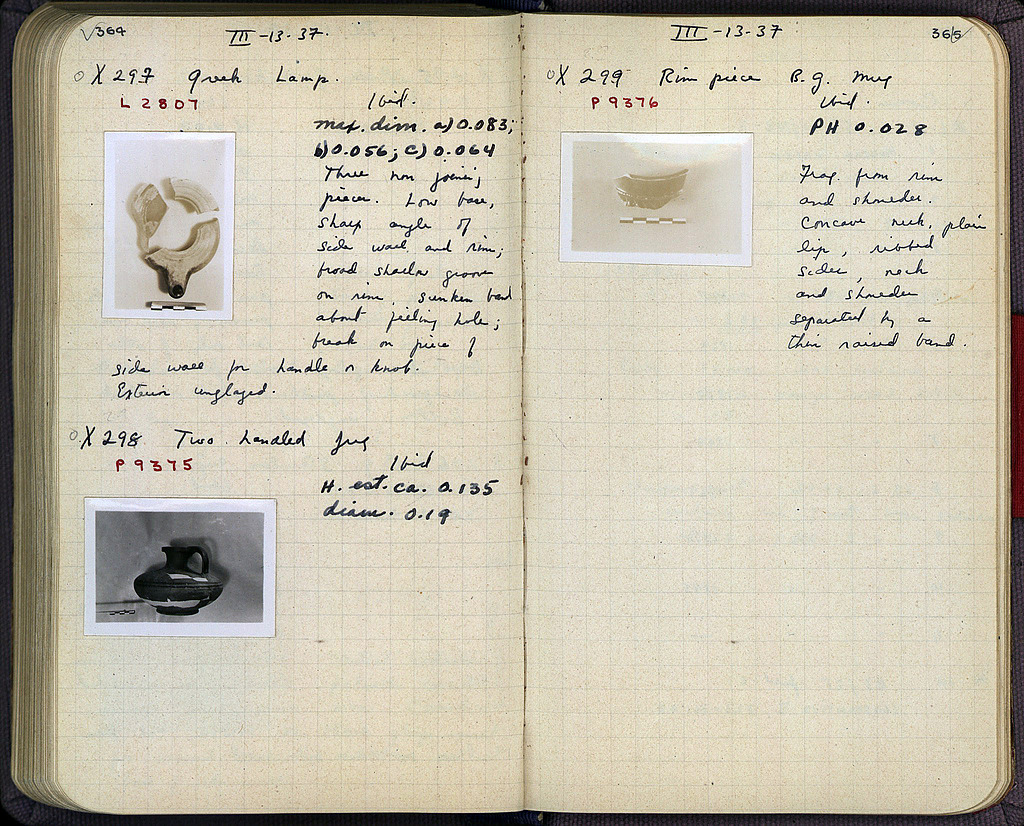 364
III - 13 - 37.
X 297 Greek Lamp.
L 2807
Ibid.
max. dim. a) 0.083;
b) 0.056; c) 0.064
Three non joining
pieces. Low base,
sharp angle of
side wall and rim;
broad shallow groove
on rim, sunken band
about filling hole;
break on piece of
side wall for handle or knob.
Exterior unglazed.
X 298 Two handled jug
P 9375
Ibid
H. est. ca. 0.135
diam. 0.19
III - 13 - 37
365
X 299 Rim piece B.g. mug
P 9376
Ibid.
PH 0.028
Frag. from rim
and shoulder.
Concave neck, plain
lip, ribbed
sides, neck
and shoulder
separated by a
thin raised band.